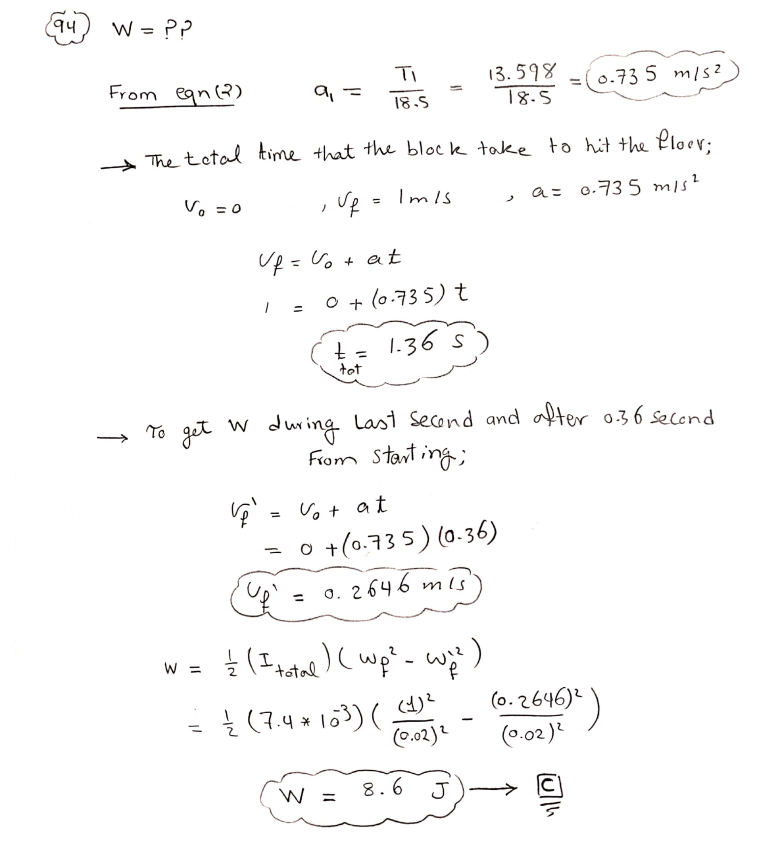 94) W = ??
From eqn(2) a₁ = T₁/18.5 = 13.598/18.5 = 0.735 m/s²
→ The total time that the block take to hit the floor;
V₀ = 0 , Vf = 1 m/s , a = 0.735 m/s²
Vf = V₀ + at
1 = 0 + (0.735) t
t tot = 1.36 s
→ To get W during Last Second and after 0.36 second
From starting;
Vf' = V₀ + at
= 0 + (0.735) (0.36)
Vf' = 0.2646 m/s
W = ½ (I total) (ωf² - ωf'²)
= ½ (7.4 * 10⁻³) ( (1)²/(0.02)² - (0.2646)²/(0.02)² )
W = 8.6 J → C